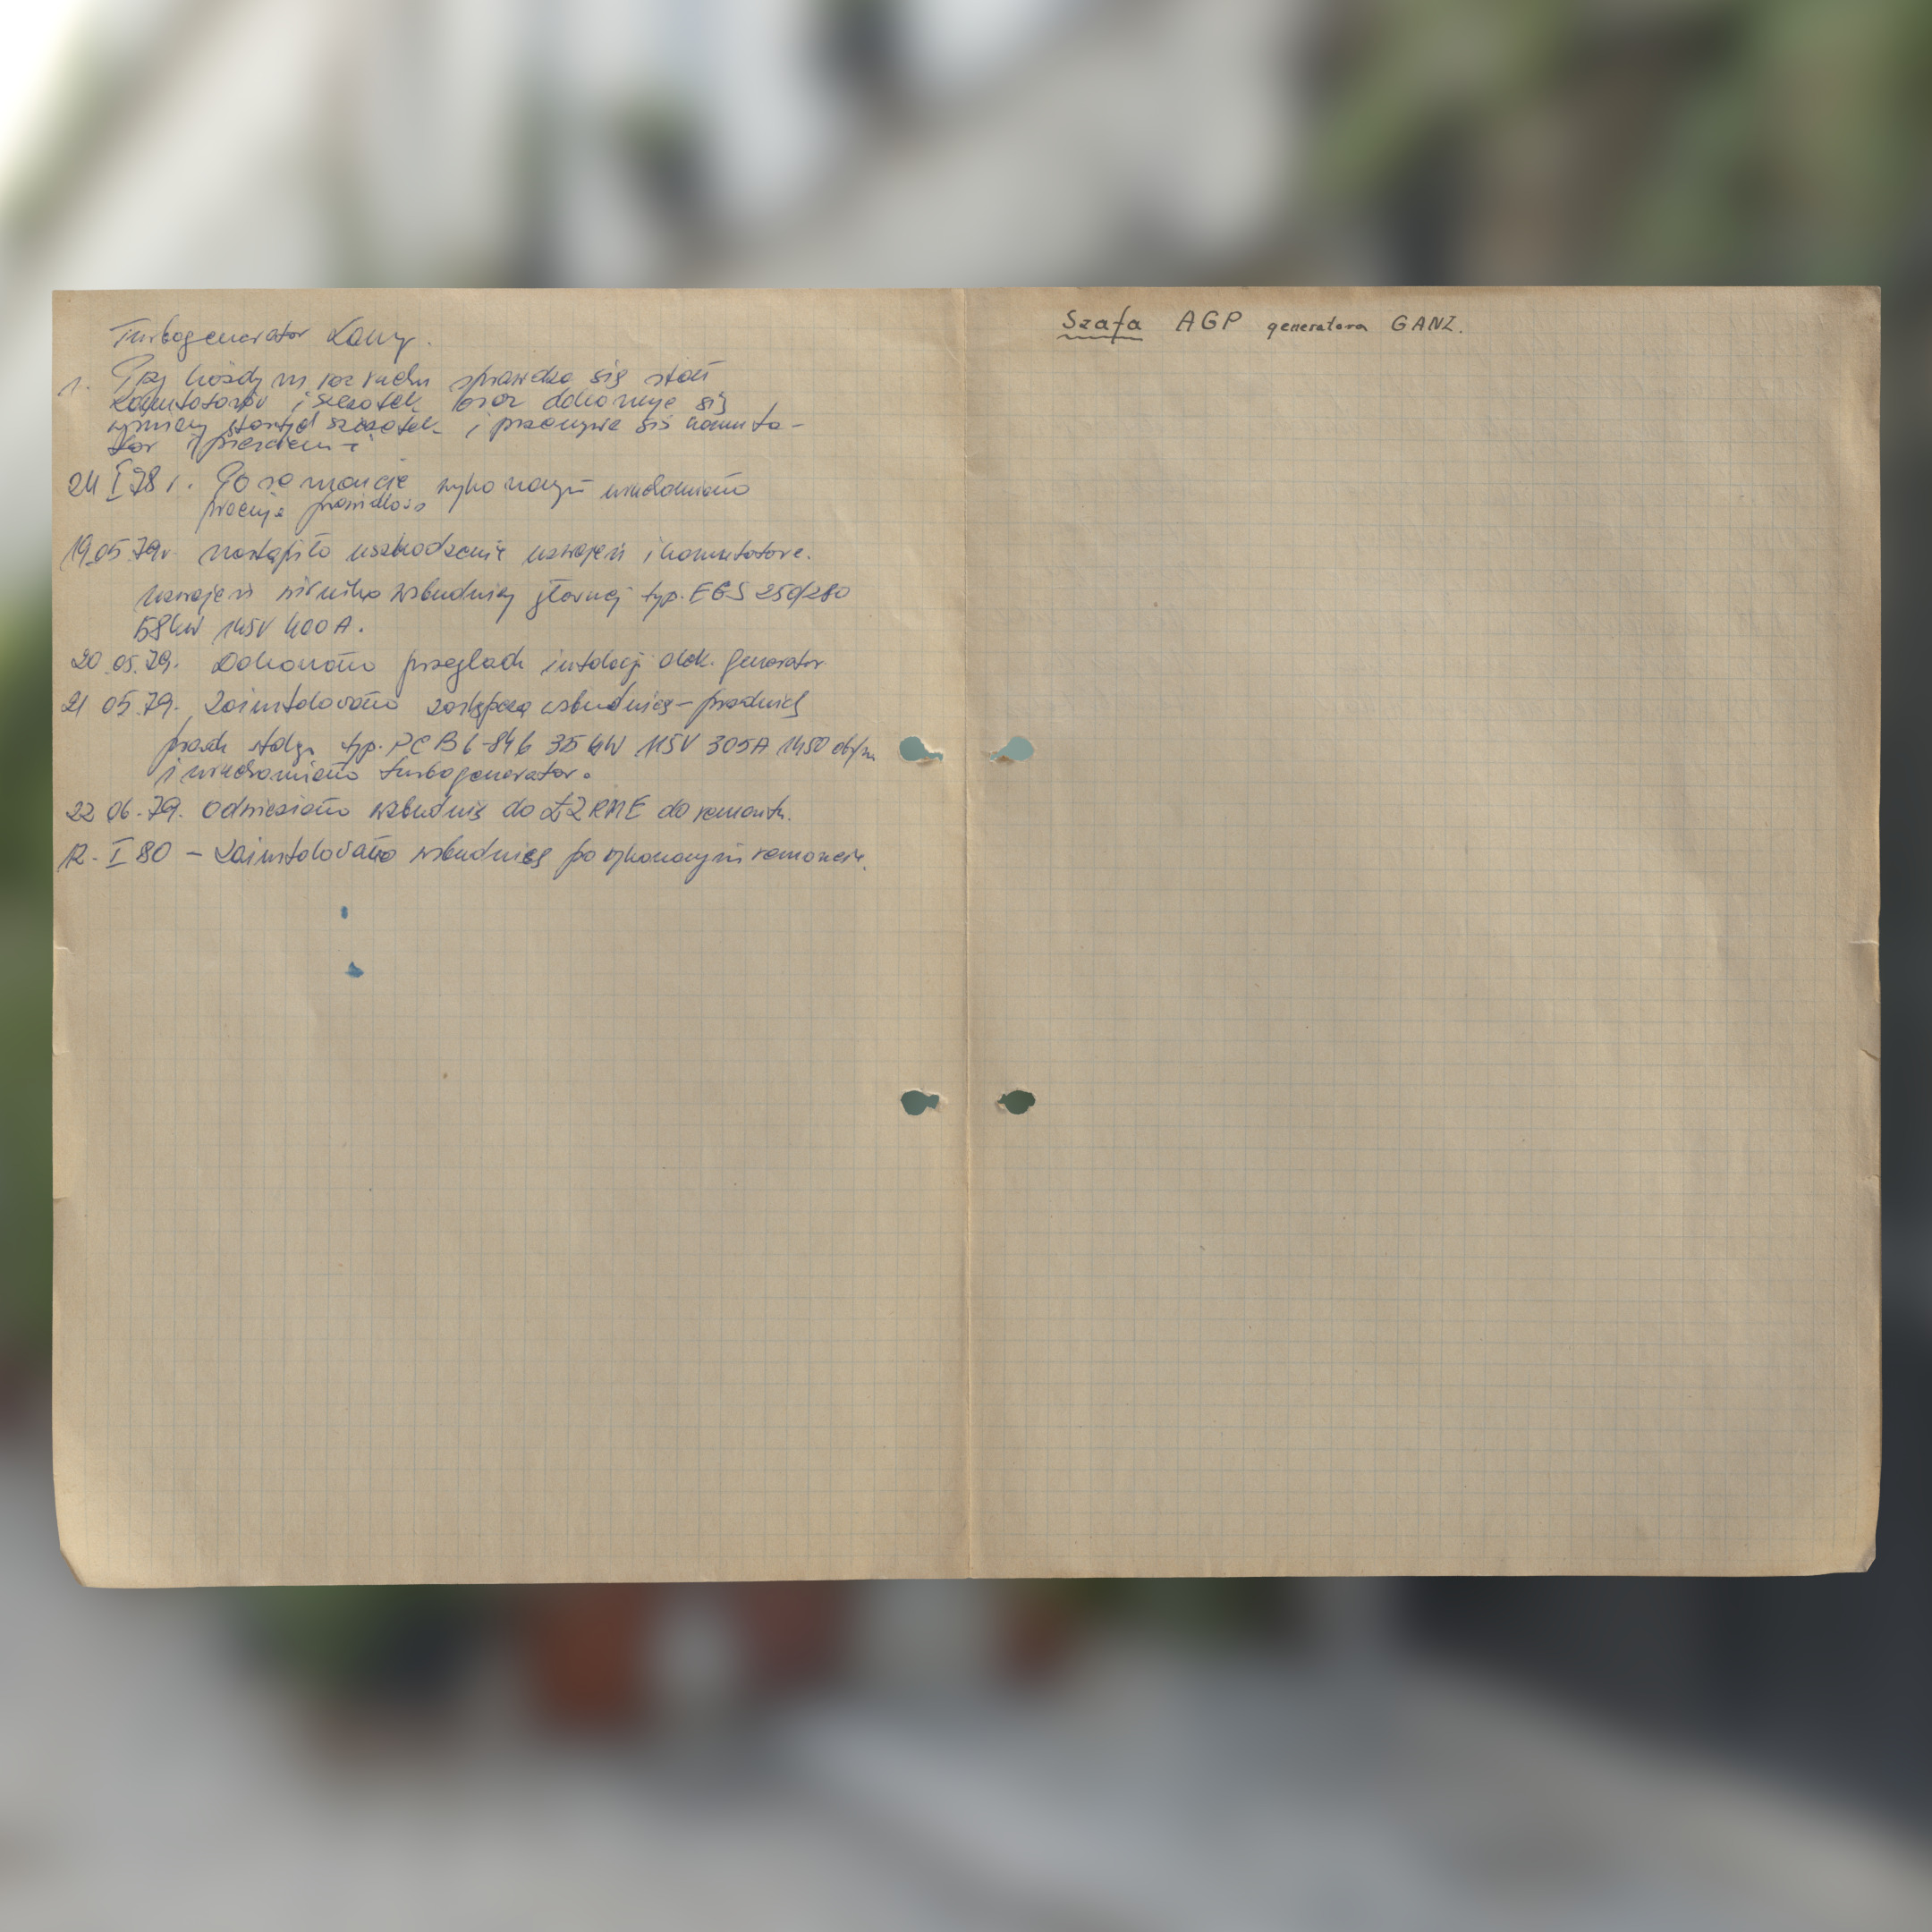 Turbogenerator Lang.
1. Przy każdym rozruchu sprawdza się stan
komutatorów i szczotek oraz dokonuje się
wymiany startych szczotek i przemywa się komuta-
tor i pierścieni
24 I 78 r. Po remoncie wykonanym uruchomiono
pracuje prawidłowo
19.05.79r nastąpiło uszkodzenie uzwojeń i komutatora.
uzwojeń wirnika wzbudnicy głównej typ. EGS 250/280
58kW 145V 400A.
20.05.79. Dokonano przeglądu instalacji elek. generator
21 05.79. Zainstalowano zastępczą wzbudnicę – prądnicę
prądu stałego typ. PCB b-84b 35 kW 115V 305A 1450 obr/m
i uruchomiono turbogenerator.
22 06.79. Odwieziono wzbudnię do ŁZRME do remontu.
12. I 80 – Zainstalowano wzbudnicę po wykonanym remoncie.
Szafa AGP generatora GANZ.